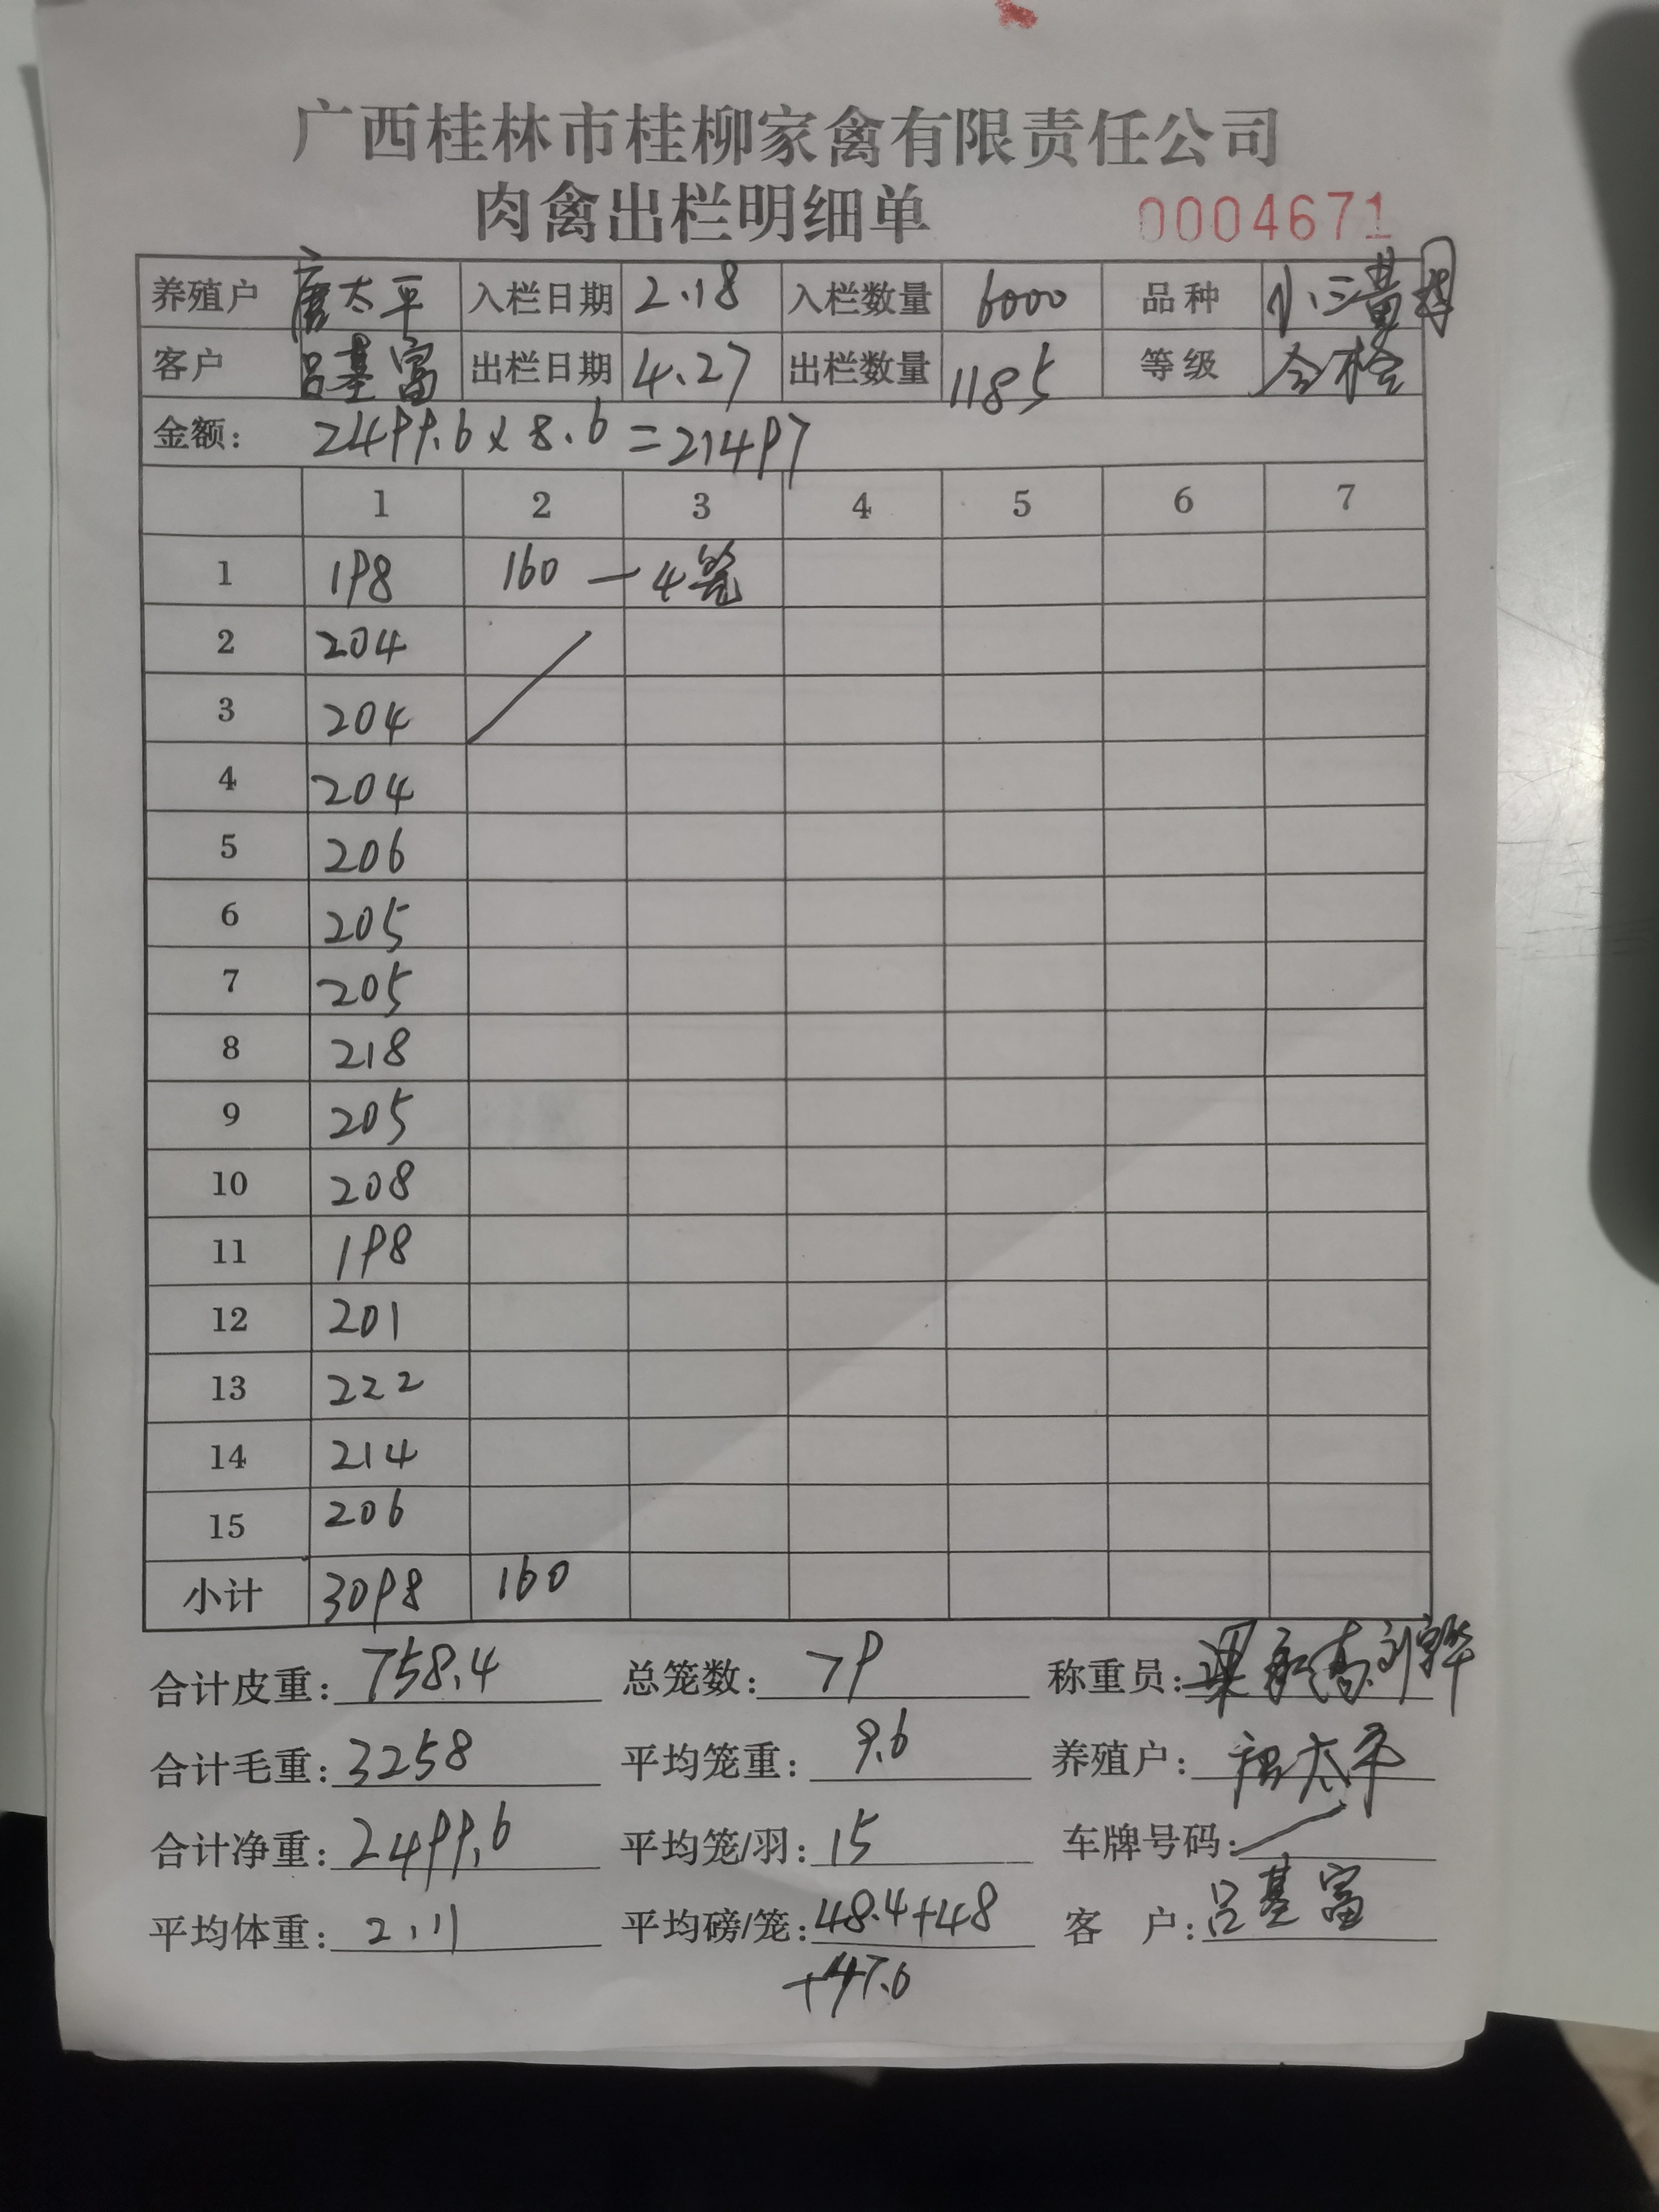 广西桂林市桂柳家禽有限责任公司
肉禽出栏明细单 0004671
养殖户 唐太平 入栏日期 2.18 入栏数量 6000 品种 小三黄
客户 吕基富 出栏日期 4.27 出栏数量 1185 等级 合格
金额: 2499.6×8.6=21497
1 2 3 4 5 6 7
1 198 160 — 4笼
2 204
3 204
4 204
5 206
6 205
7 205
8 218
9 205
10 208
11 198
12 201
13 222
14 214
15 206
小计 3098 160
合计皮重: 758.4 总笼数: 79 称重员:
合计毛重: 3258 平均笼重: 9.6 养殖户: 唐太平
合计净重: 2499.6 平均笼/羽: 15 车牌号码:
平均体重: 2.11 平均磅/笼: 48.4+48 客 户: 吕基富
+47.6